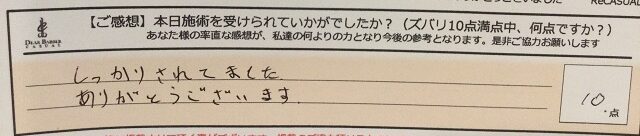 ReCASUAL
【ご感想】本日施術を受けられていかがでしたか？（ズバリ10点満点中、何点ですか？）
あなた様の率直な感想が、私達の何よりの力となり今後の参考となります。是非ご協力お願いします
DEAR BARBER
CASUAL
しっかりされてました
ありがとうございます
10.点